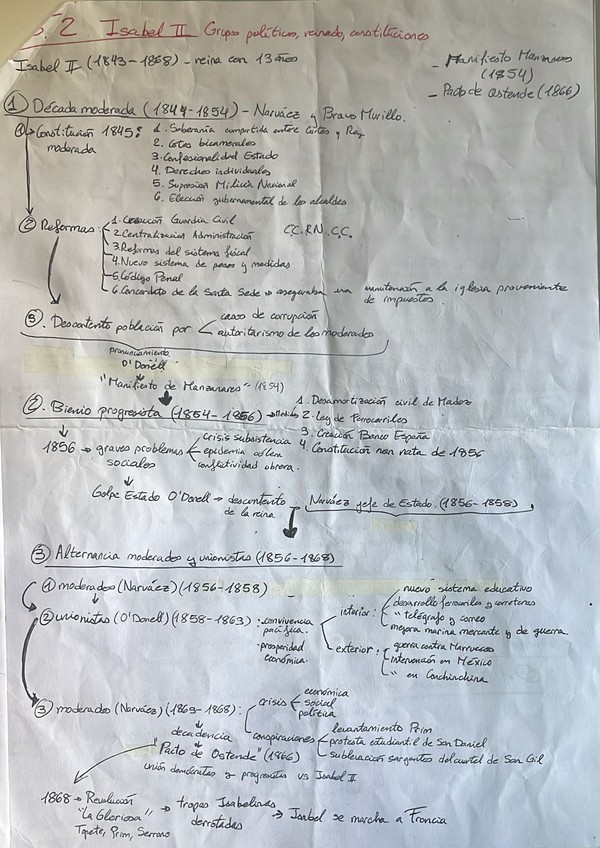 5. 2. Isabel II Grupos políticos, reinado, constituciones
Isabel II (1843-1868) - reina con 13 años
- Manifiesto Manzanares
(1854)
- Pacto de Ostende (1866)
① Década moderada (1844-1854) - Narváez y Bravo Murillo.
① Constitución 1845:
moderada
1. Soberanía compartida entre Cortes y Rey
2. Cortes bicamerales
3. Confesionalidad Estado
4. Derechos individuales
5. Supresión Milicia Nacional
6. Elección gubernamental de los alcaldes
② Reformas:
1. Creación Guardia Civil
2. Centralización Administración
3. Reformas del sistema fiscal
4. Nuevo sistema de pesos y medidas
5. Código Penal
6. Concordato de la Santa Sede → aseguraba una manutención a la iglesia proveniente
de impuestos.
C.C.R.N.C.C.
③. Descontento población por
casos de corrupción
autoritarismo de los moderados
pronunciamiento
O'Donell
"Manifiesto de Manzanares" (1854)
②. Bienio progresista (1854-1856) → Medidas
1. Desamortización civil de Madoz
2. Ley de Ferrocarriles
3. Creación Banco España
4. Constitución non nata de 1856
1856 → graves problemas
sociales
crisis subsistencia
epidemia cólera
conflictividad obrera.
Golpe Estado O'Donell → descontento
de la reina
Narváez jefe de Estado. (1856-1858)
③ Alternancia moderados y unionistas (1856-1868)
① moderados (Narváez) (1856-1858)
② unionistas (O'Donell) (1858-1863)
· convivencia
pacífica.
· prosperidad
económica.
interior:
nuevo sistema educativo
desarrollo ferrocarriles y carreteras
" telégrafo y correo
mejora marina mercante y de guerra.
exterior,
guerra contra Marruecos
intervención en México
" en Conchinchina
③ moderados (Narváez) (1863-1868):
decadencia
crisis
económica
social
política
conspiraciones
levantamiento Prim
protesta estudiantil de San Daniel
sublevación sargentos del cuartel de San Gil
"Pacto de Ostende" (1866)
unión demócratas y progresistas vs Isabel II
1868 → Revolución
"La Gloriosa"
Topete, Prim, Serrano
→ tropas Isabelinas
derrotadas
→ Isabel se marcha a Francia